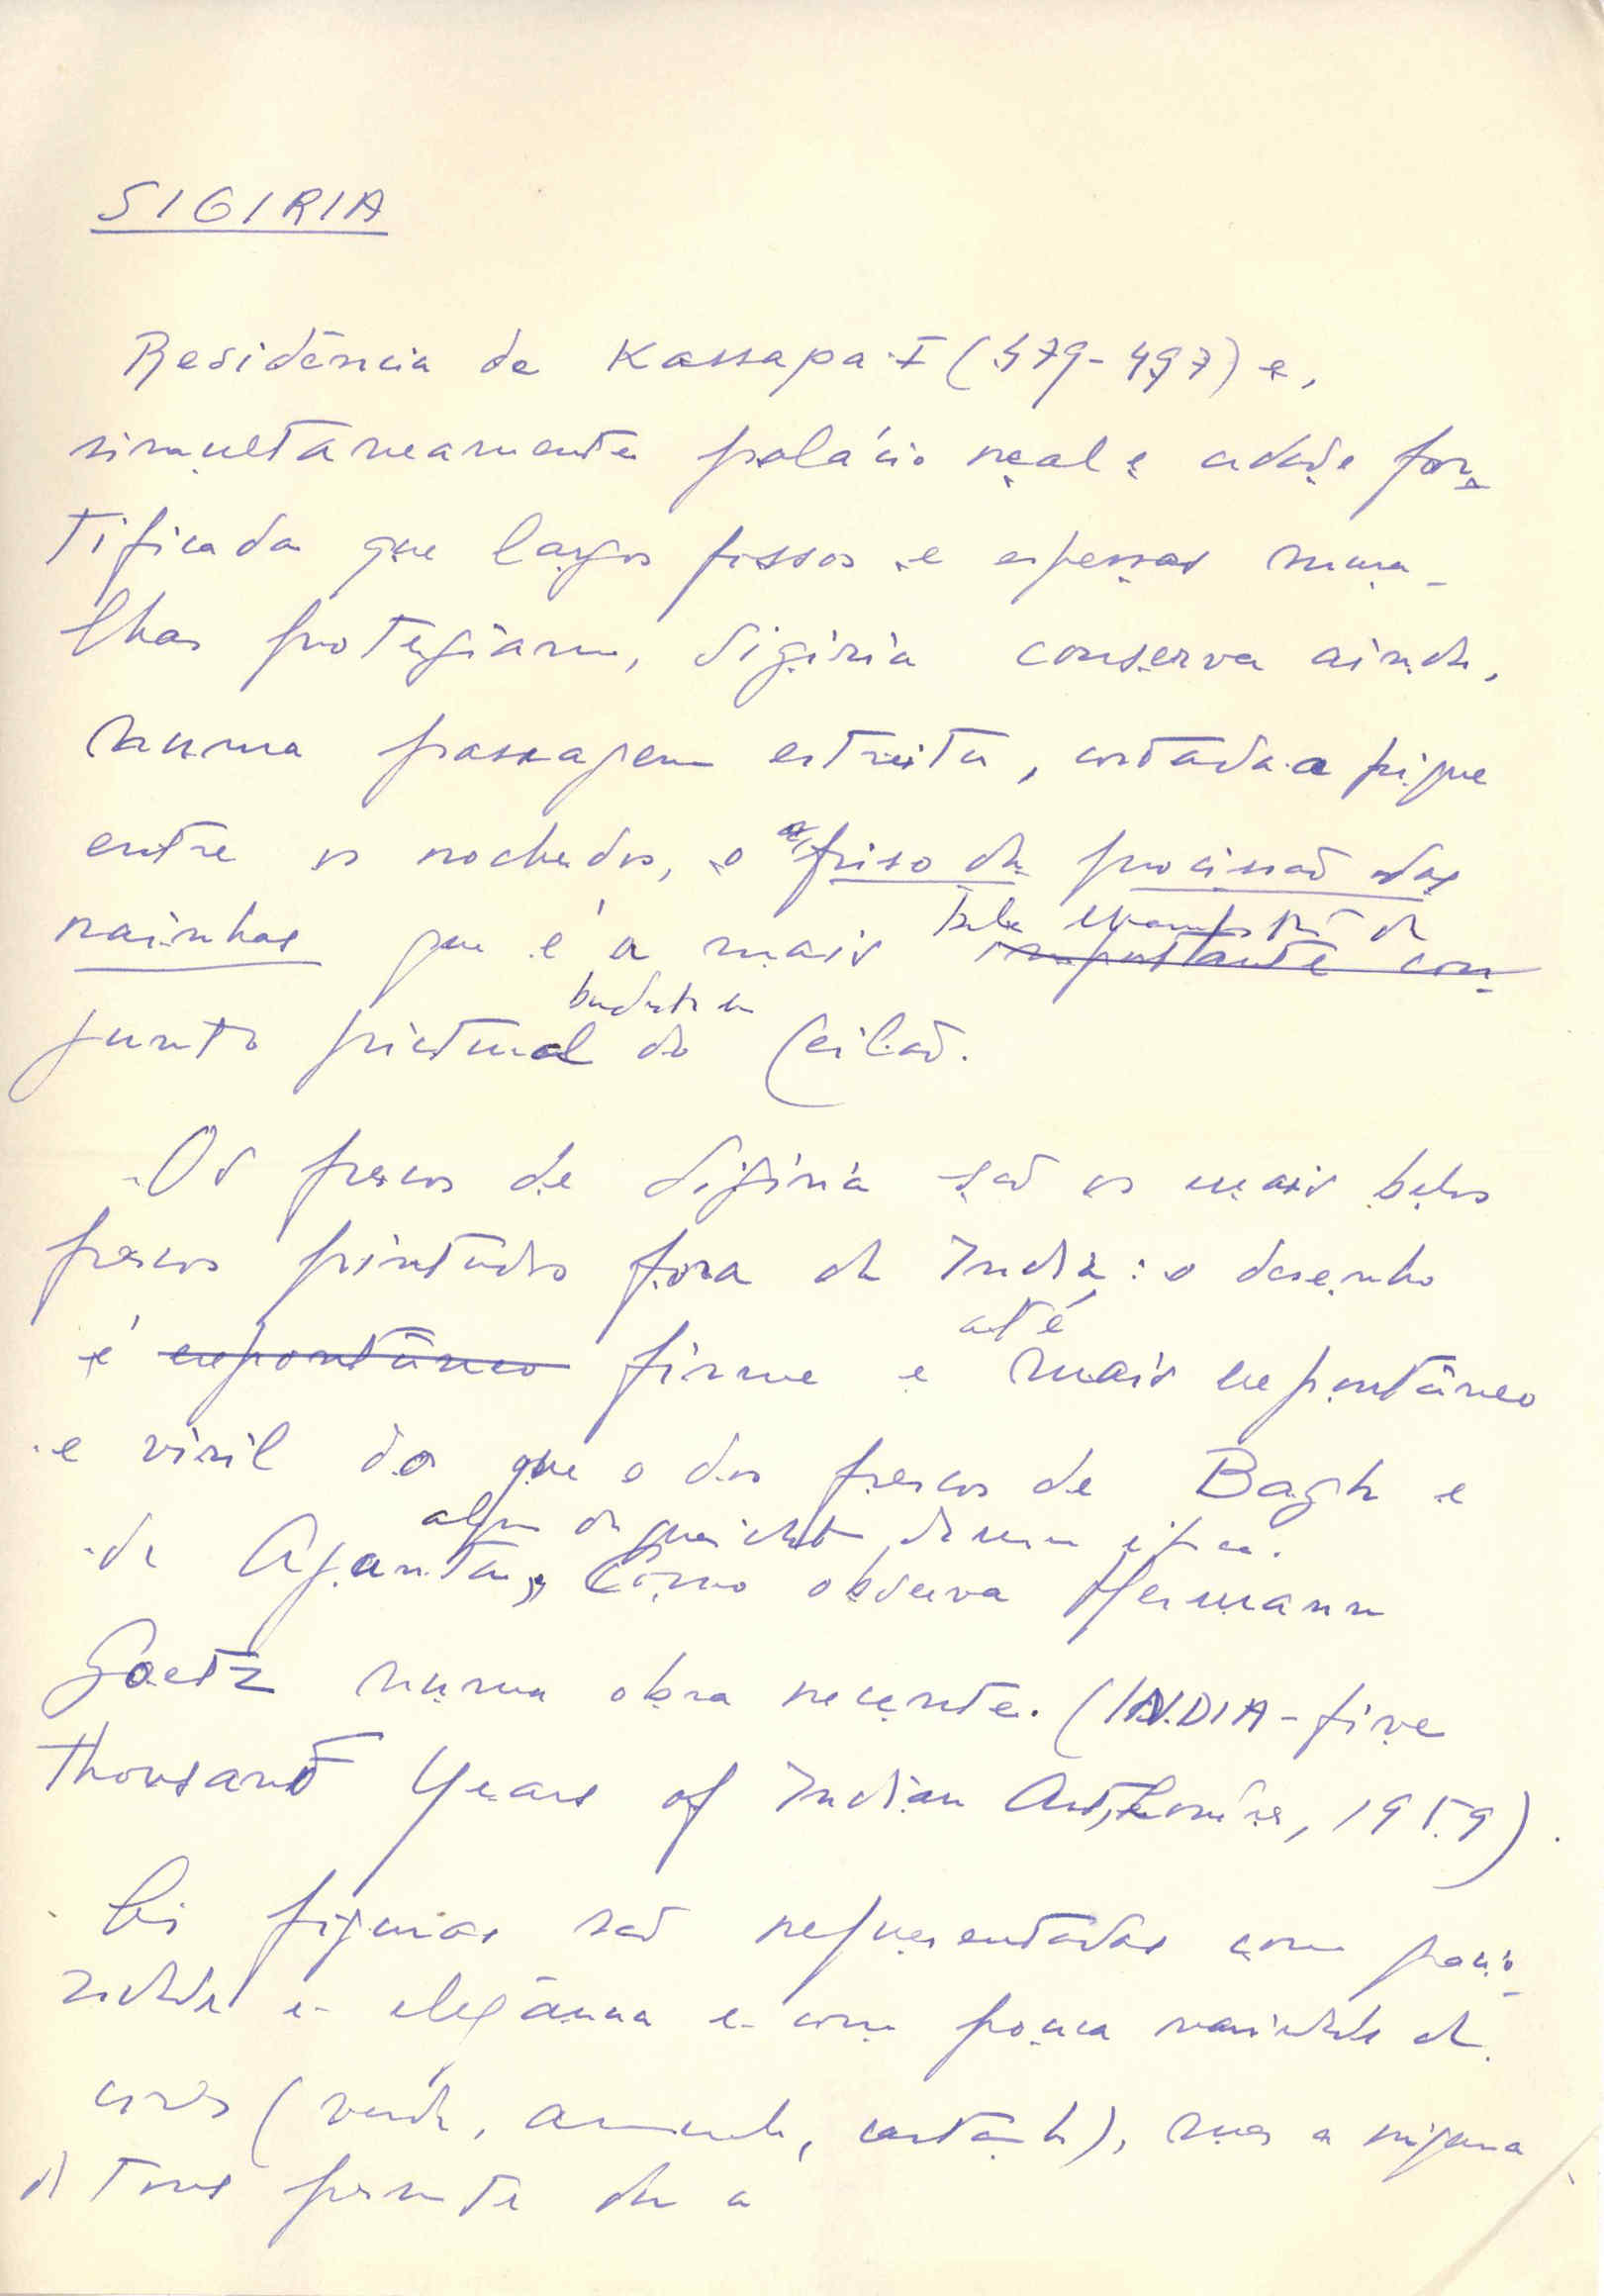 SIGIRIA
Residência de Kassapa I (479-497) e,
simultaneamente palácio real e cidade for-
tificada que largos fossos e espessas mura-
lhas protegiam, Sigiria conserva ainda,
numa passagem estreita, cortada a pique
entre os rochedos, o friso da procissão das
rainhas que é a mais bela
importante con-
junto pictural do Ceilão.
Os frescos de Sigiria são os mais belos
frescos pintados fora da India: o desenho
até
é espontâneo firme e mais espontâneo
e viril do que o dos frescos de Bagh e
de Ajanta, Como observa Hermann
Goetz numa obra recente. (INDIA - five
thousand Years of Indian Art, Londres, 1959).
As figuras são representadas com precio-
sidade e elegância e com pouca variedade de
cores (verde, amarelo, castanho), mas a riqueza
de tons permite dar a